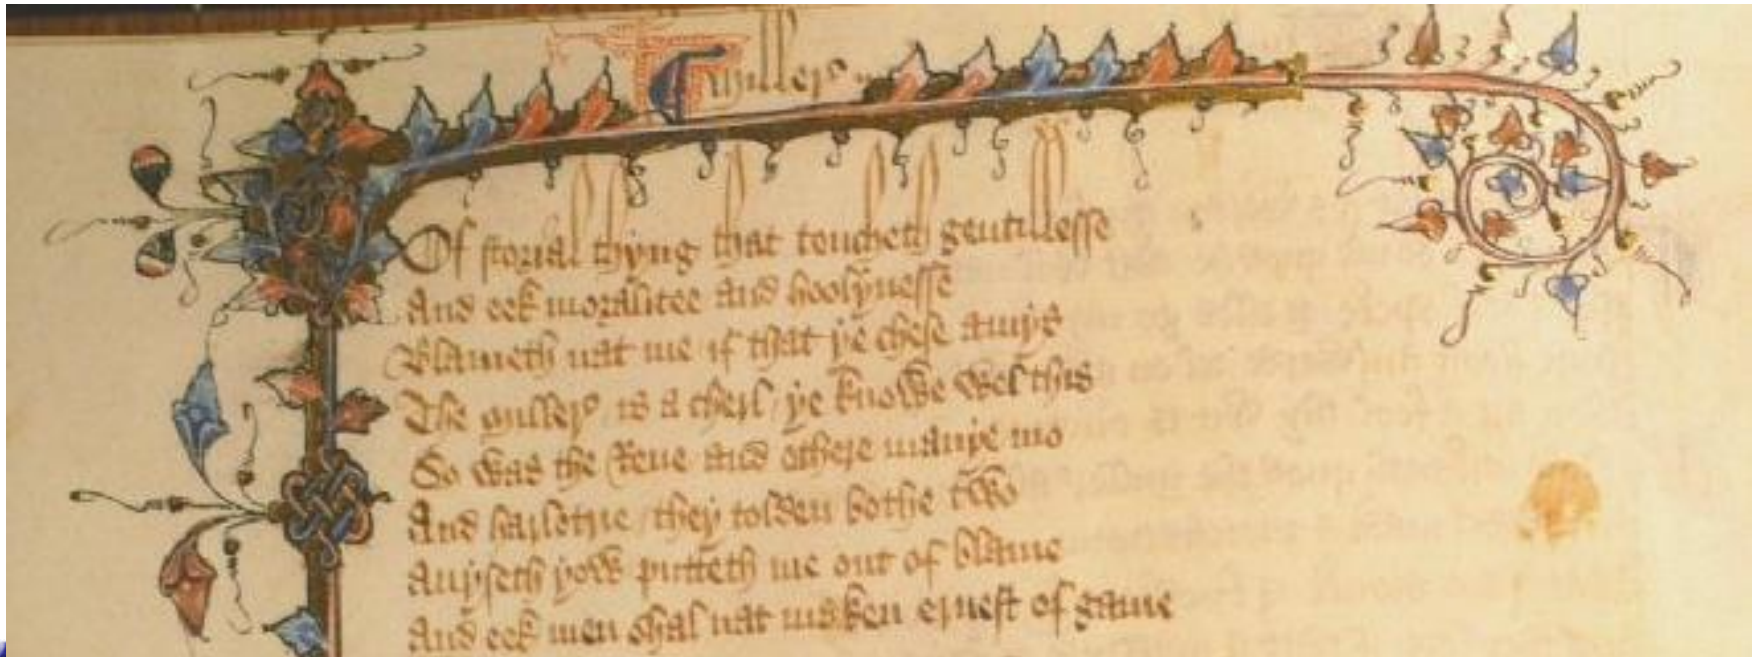 Millere
Of storial thyng that toucheth gentillesse
And eek moralitee and hoolynesse
Blameth nat me if that ye chese amys
The Millere is a cherl / ye knowe wel this
So was the Reue and othere manye mo
And harlotrie / they tolden bothe two
Auyseth yow putteth me out of blame
And eek men shal nat maken ernest of game